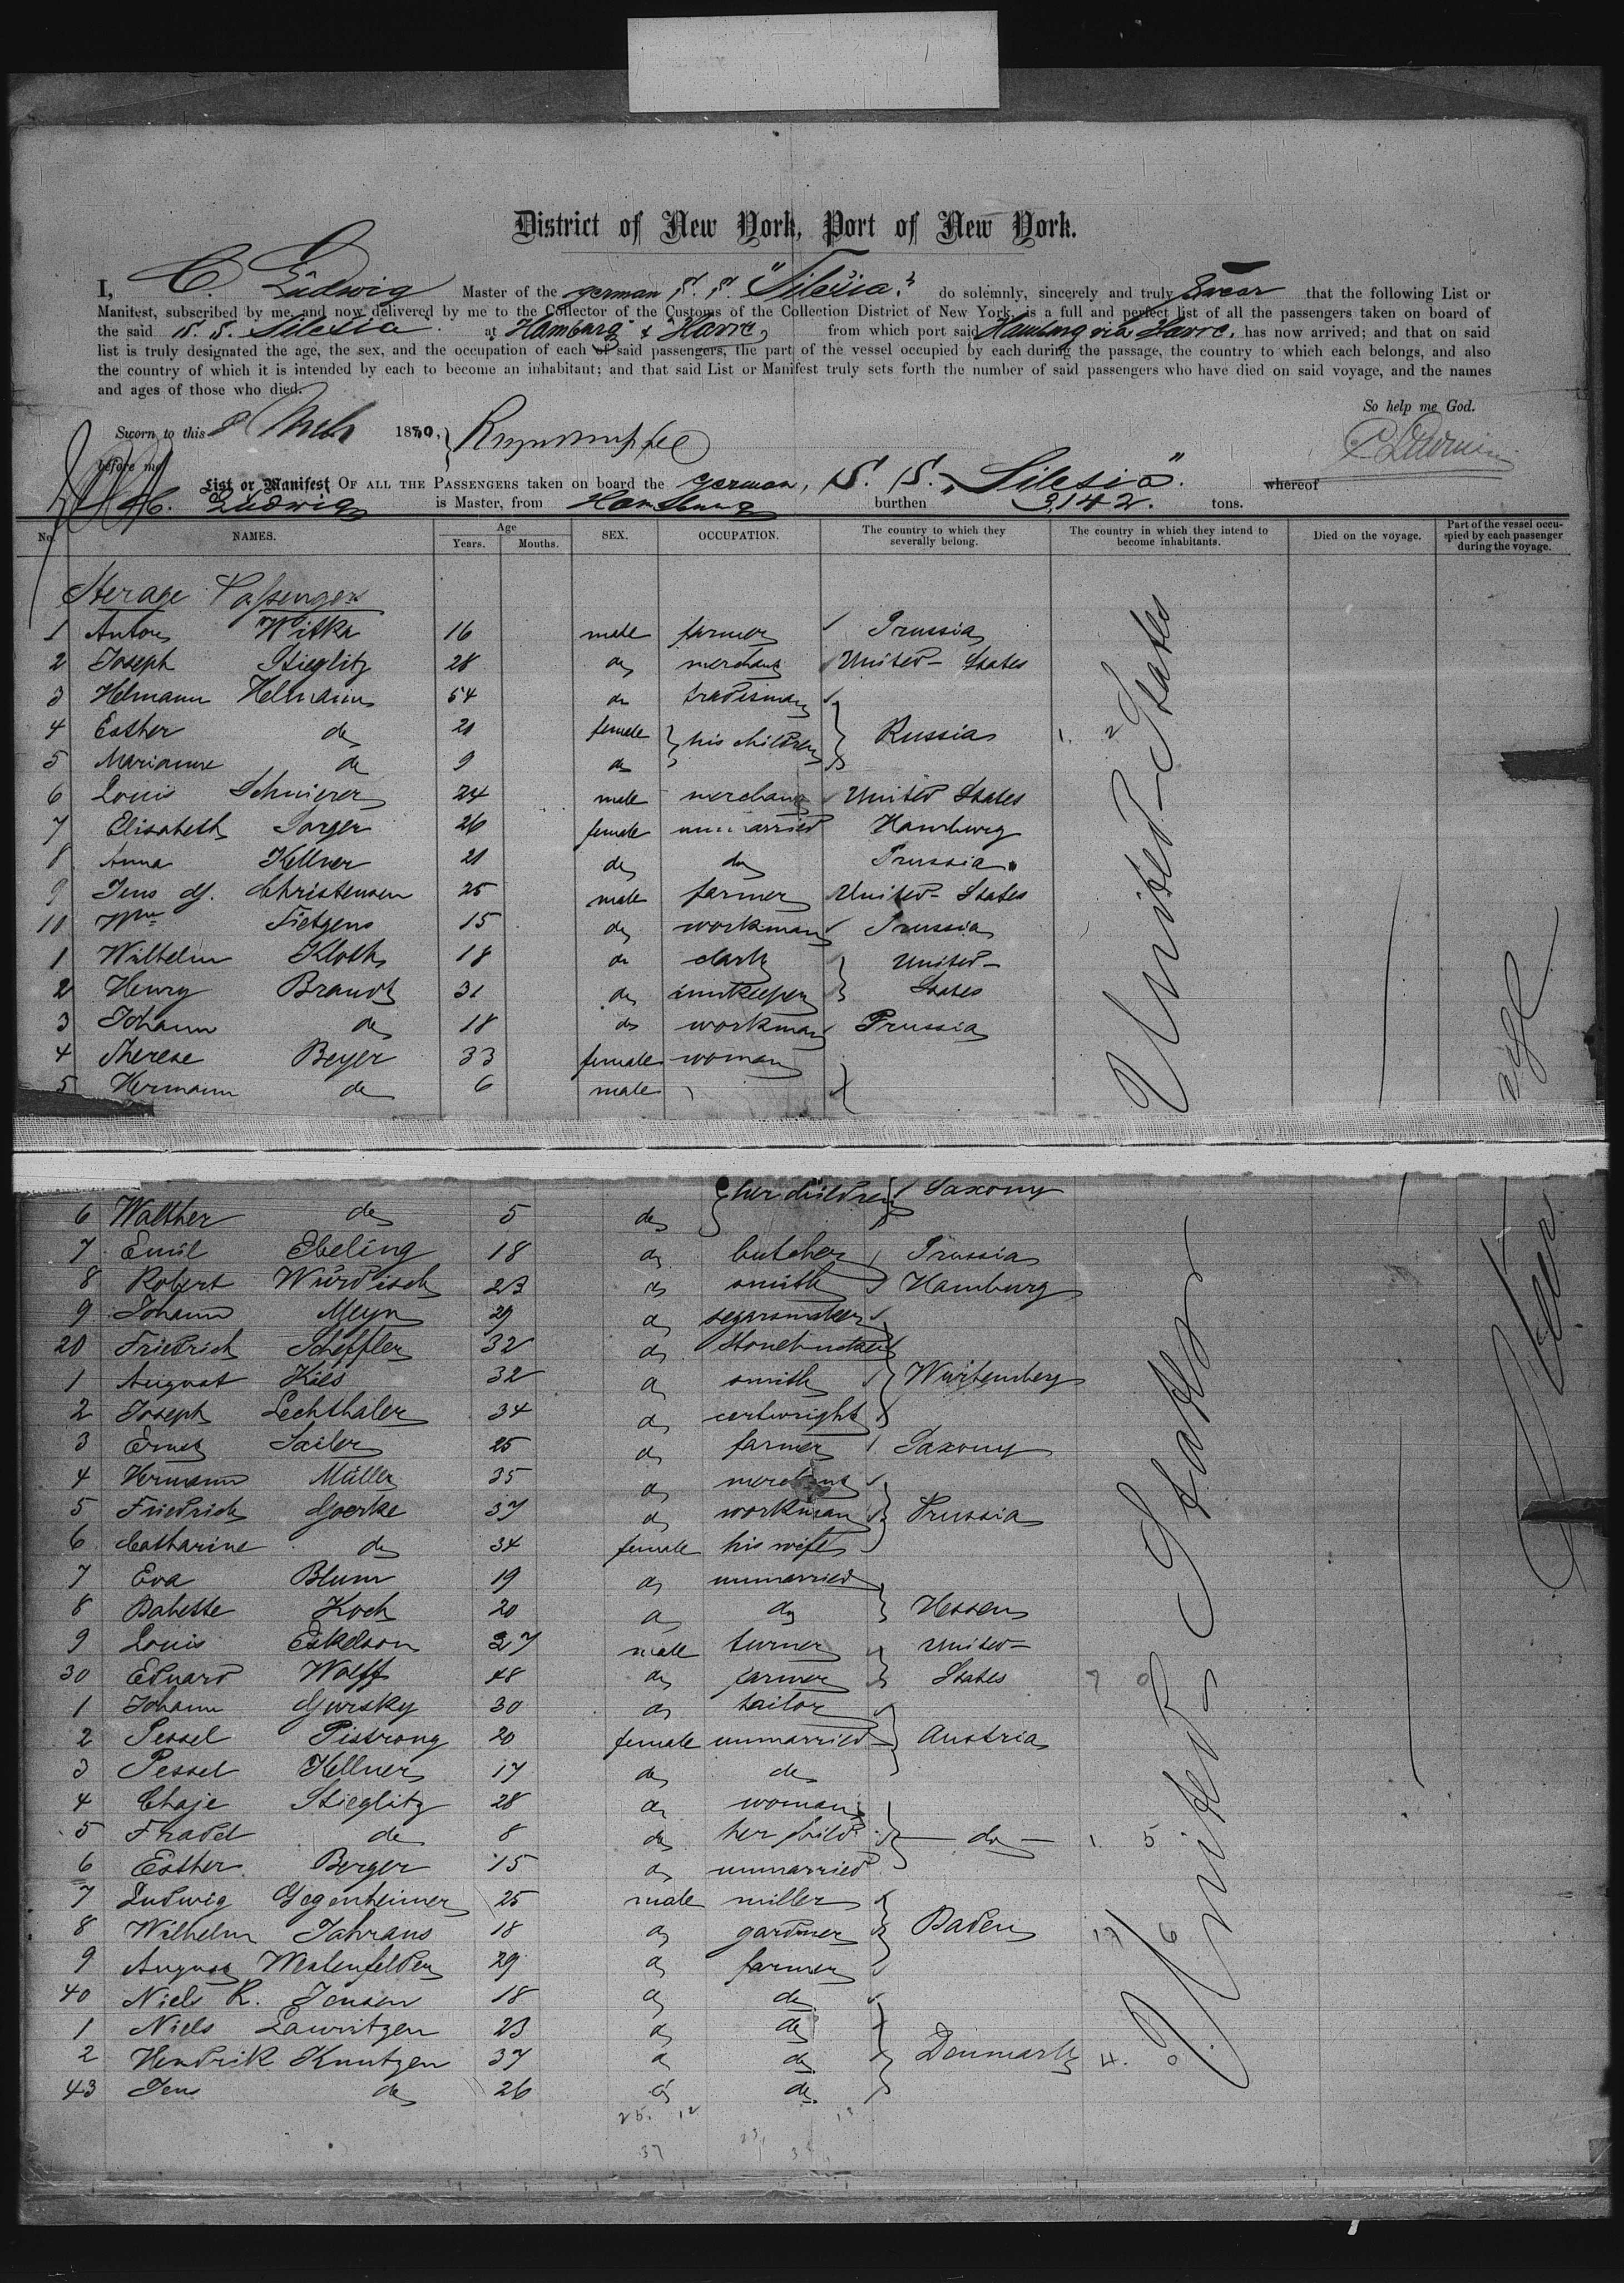 District of New York, Port of New York.
I, C. Ludwig Master of the german S. S. "Silesia" do solemnly, sincerely and truly swear that the following List or
Manifest, subscribed by me, and now delivered by me to the Collector of the Customs of the Collection District of New York, is a full and perfect list of all the passengers taken on board of
the said S. S. Silesia. at Hamburg & Havre, from which port said Hamburg via Havre, has now arrived; and that on said
list is truly designated the age, the sex, and the occupation of each of said passengers, the part of the vessel occupied by each during the passage, the country to which each belongs, and also
the country of which it is intended by each to become an inhabitant; and that said List or Manifest truly sets forth the number of said passengers who have died on said voyage, and the names
and ages of those who died.
So help me God.
Sworn to this 8 1880,
before me
List or Manifest OF ALL THE PASSENGERS taken on board the german, S. S. "Silesia". whereof
C. Ludwig is Master, from Hamburg burthen 3142. tons.
No. NAMES. Age Years. Months. SEX. OCCUPATION. The country to which they severally belong. The country in which they intend to become inhabitants. Died on the voyage. Part of the vessel occupied by each passenger during the voyage.
Sterage Passengers
1 Anton Witka 16 male farmer Prussia
2 Joseph Stieglitz 28 do merchant United-States
3 Helmann Helmann 54 do tradisman
4 Esther do 21 female his children Russia 1. 2
5 Marianne do 9 do
6 Louis Schnierer 24 male merchant United States
7 Elisabeth Sorger 26 female unmarried Hamburg
8 Anna Kellner 21 do do Prussia
9 Jens J. Christensen 25 male farmer United-States
10 Wm Fietgens 15 do workman Prussia
1 Wilhelm Kloth 18 do clark United-
2 Henry Brandt 31 do innkeeper States
3 Johann do 18 do workman Prussia
4 Therese Beyer 33 female woman
5 Hermann do 6 male
United-States
6 Walther do 5 do her children Saxony
7 Emil Ebeling 18 do butcher Prussia
8 Robert Würdisch 23 do smith Hamburg
9 Johann Meyn 29 do segarsmaker
20 Friedrich Scheffler 32 do
1 August Kies 32 do smith Würtemberg
2 Joseph Lechthaler 34 do cartwright
3 Ernst Sailer 25 do farmer Saxony
4 Hermann Müller 35 do merchant
5 Friedrich Goerke 37 do workman Prussia
6 Catharine do 34 female his wife
7 Eva Blum 19 do unmarried
8 Babette Koch 20 do do Hessen
9 Louis Eskelson 27 male turner United-
30 Eduard Wolff 48 do farmer States 7 0
1 Johann Gursky 30 do tailor
2 Pessel Pistrong 20 female unmarried Austria
3 Pessel Kellner 17 do do
4 Chaje Stieglitz 28 do woman
5 Fradel do 8 do her child do 1 5
6 Esther Berger 15 do unmarried
7 Ludwig Gegenheimer 25 male miller
8 Wilhelm Jahraus 18 do gardner Baden 17 6
9 August Westenfelder 29 do farmer
40 Niels R. Jensen 18 do do
1 Niels Lauritzen 23 do do
2 Hendrik Knutzen 37 do do Denmark 4. 0
43 Jens do 26 do do
United States